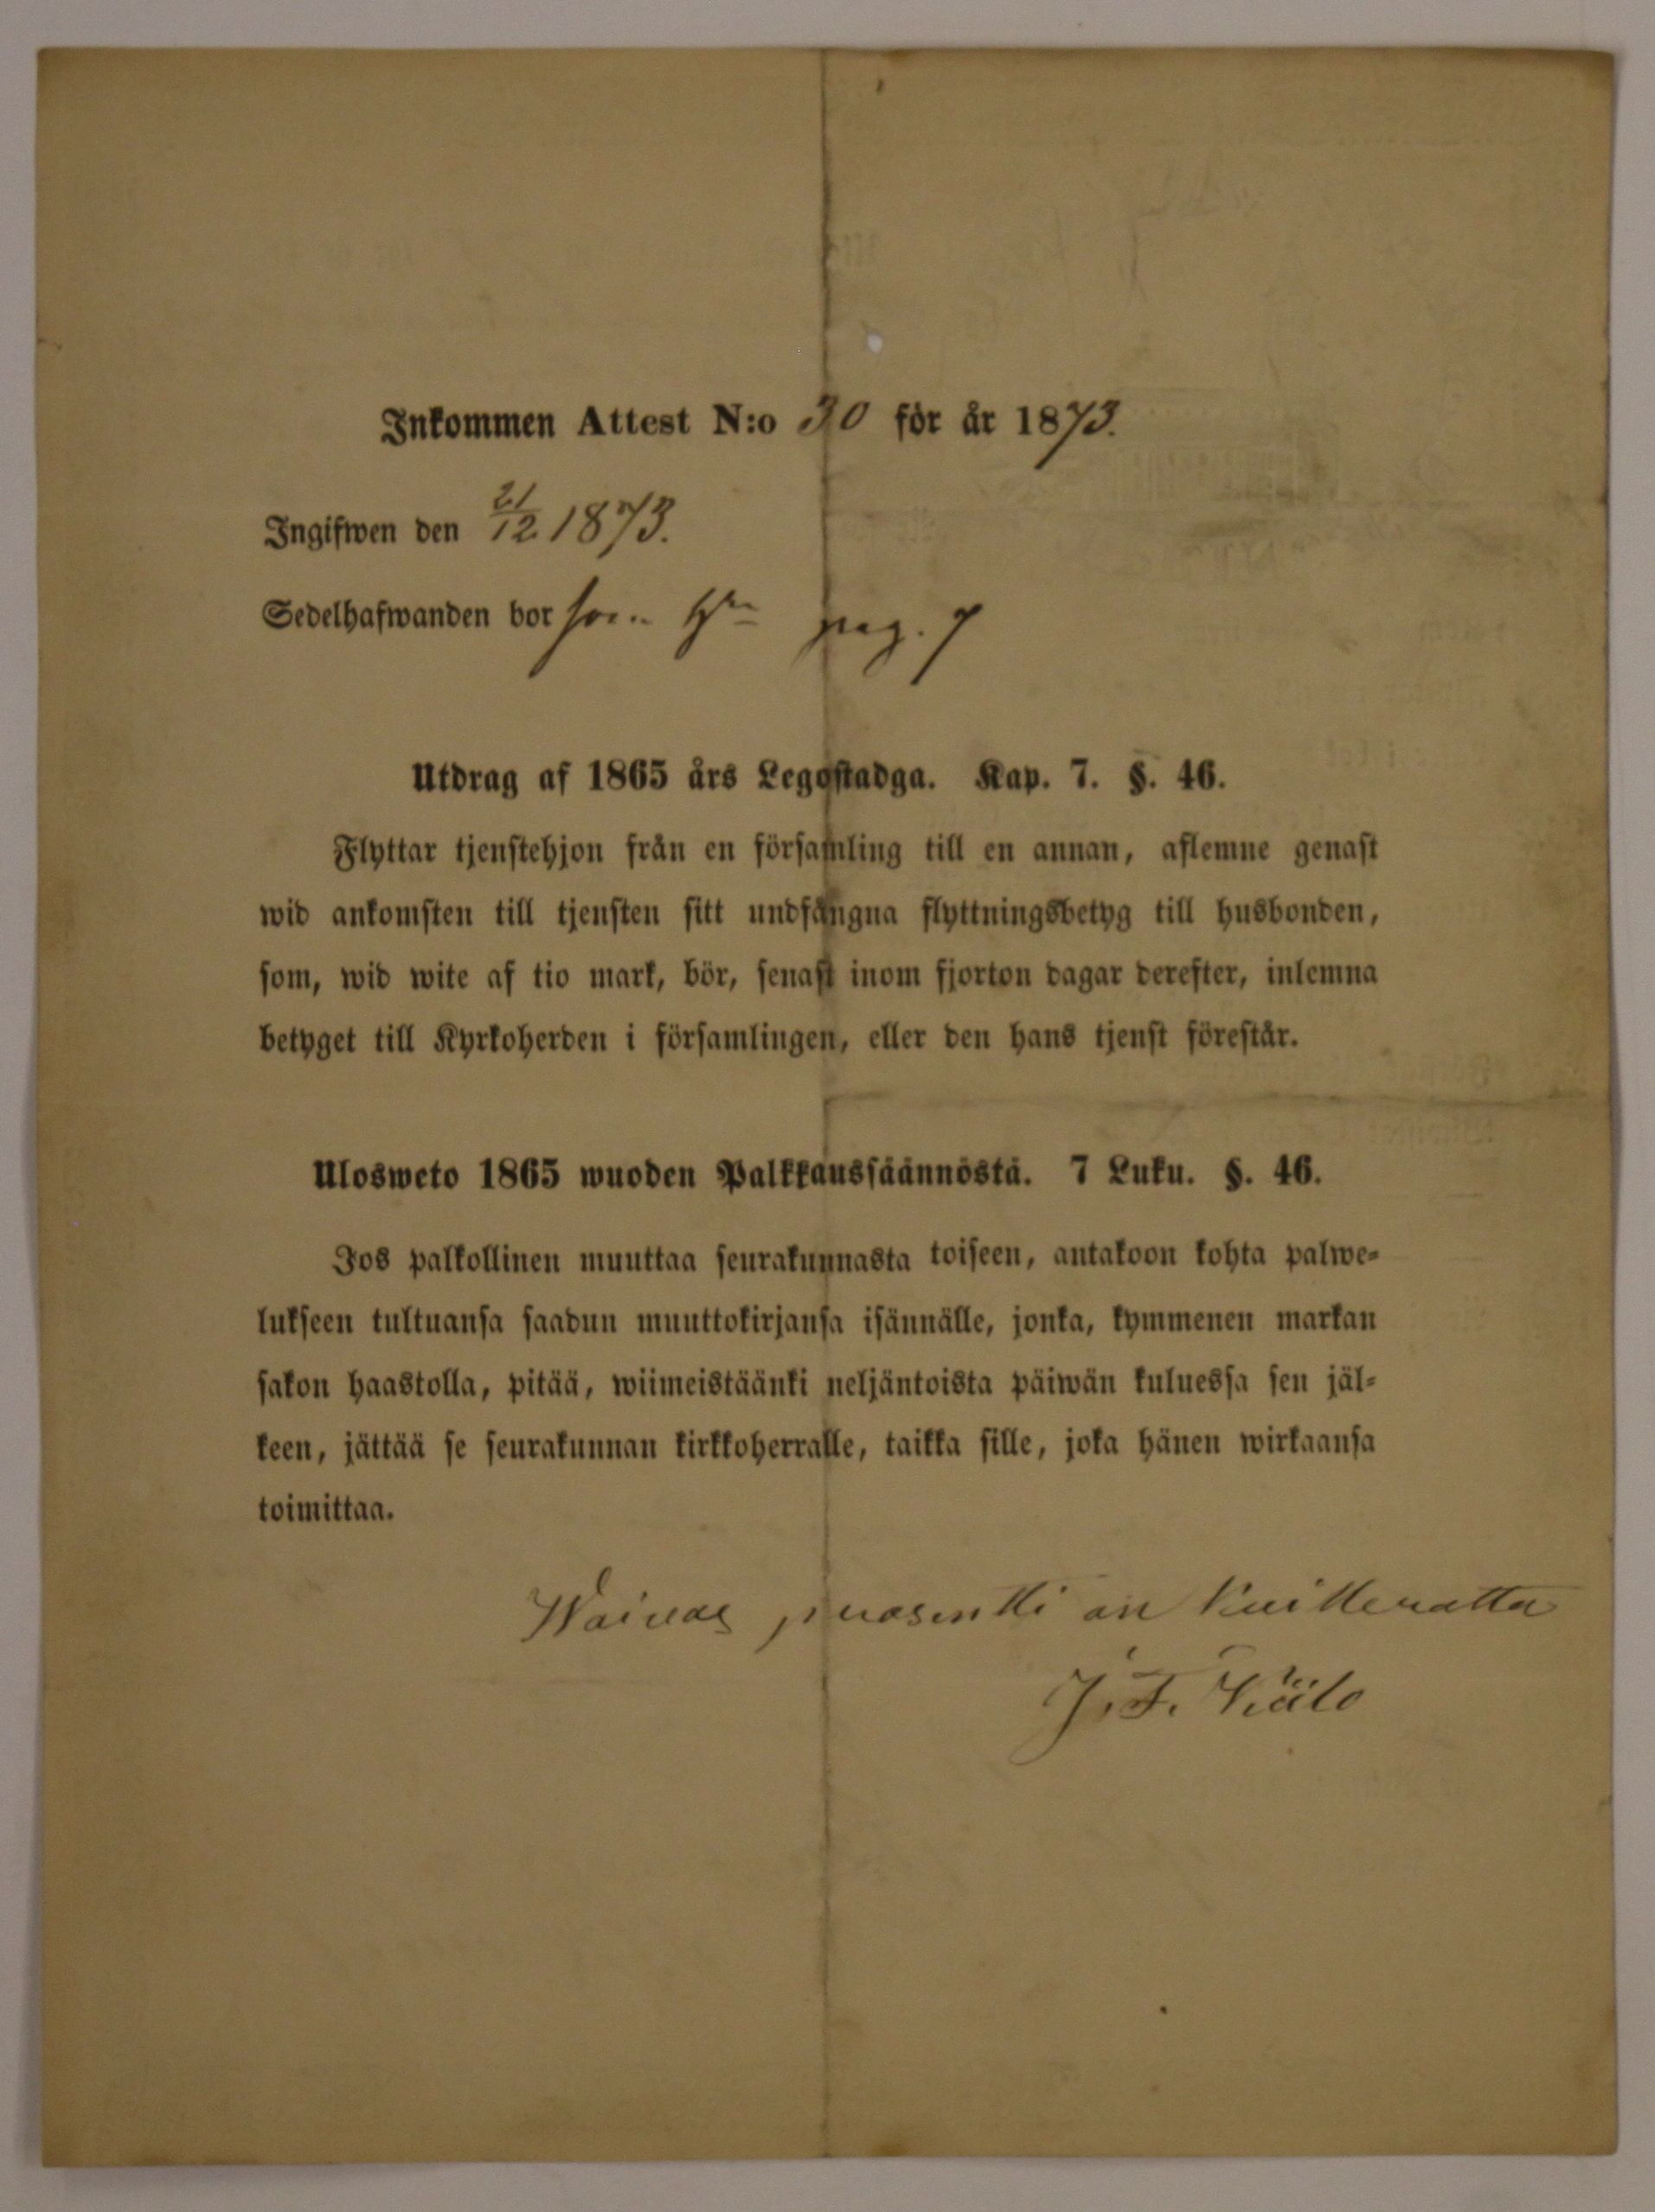 Inkommen Attest N:o 30 för år 1873.
Ingifwen den 21/12 1873.
Sedelhafwanden bor pag. 7
Utdrag af 1865 års Legostadga. Kap. 7. §. 46.
Flyttar tjenstehjon från en församling till en annan, aflemne genast
wid ankomsten till tjensten sitt undfångna flyttningsbetyg till husbonden,
som, wid wite af tio mark, bör, senast inom fjorton dagar derefter, inlemna
betyget till Kyrkoherden i församlingen, eller den hans tjenst förestår.
Ulosweto 1865 wuoden Palkkaussäännöstä. 7 Luku. §. 46.
Jos palkollinen muuttaa seurakunnasta toiseen, antakoon kohta palwe-
lukseen tultuansa saadun muuttokirjansa isännälle, jonka, kymmenen markan
sakon haastolla, pitää, wiimeistäänki neljäntoista päiwän kuluessa sen jäl-
keen, jättää se seurakunnan kirkkoherralle, taikka sille, joka hänen wirkaansa
toimittaa.
Waivas prosentti on Kuitteratta
J. F.